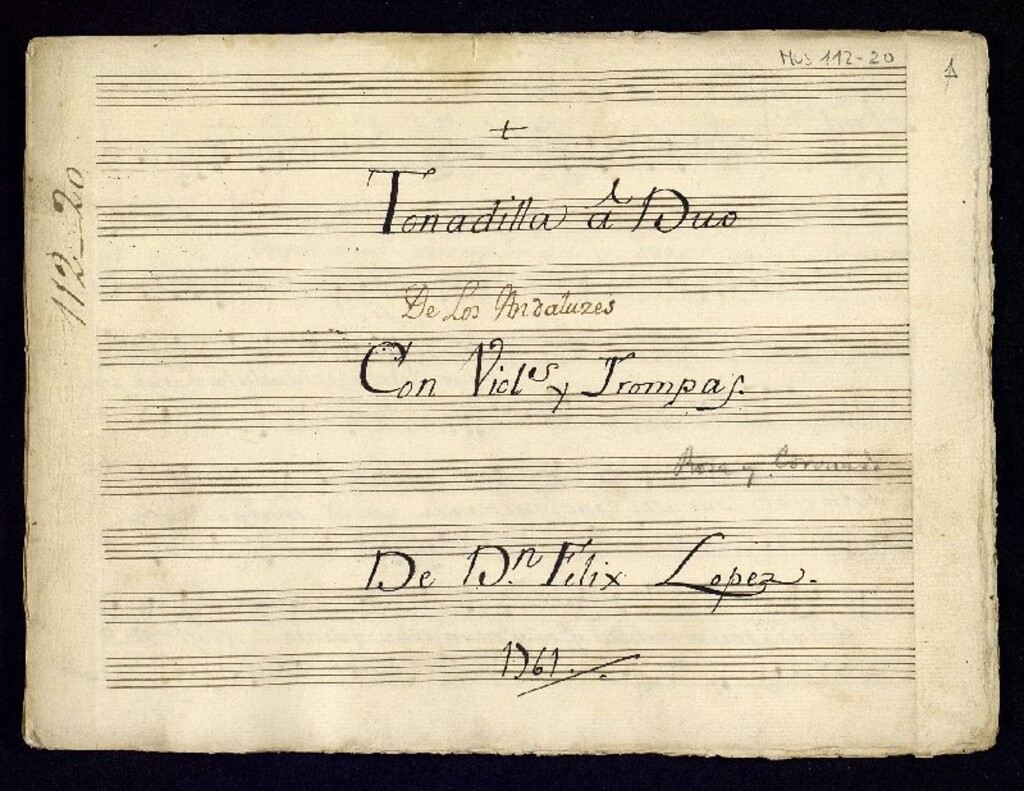 Mus 112-20
1
112-20
+
Tonadilla â Duo
De Los Andaluzes
Con Viol.s y Trompas.
Rosa y Coronado
De D.n Felix Lopez.
1761.